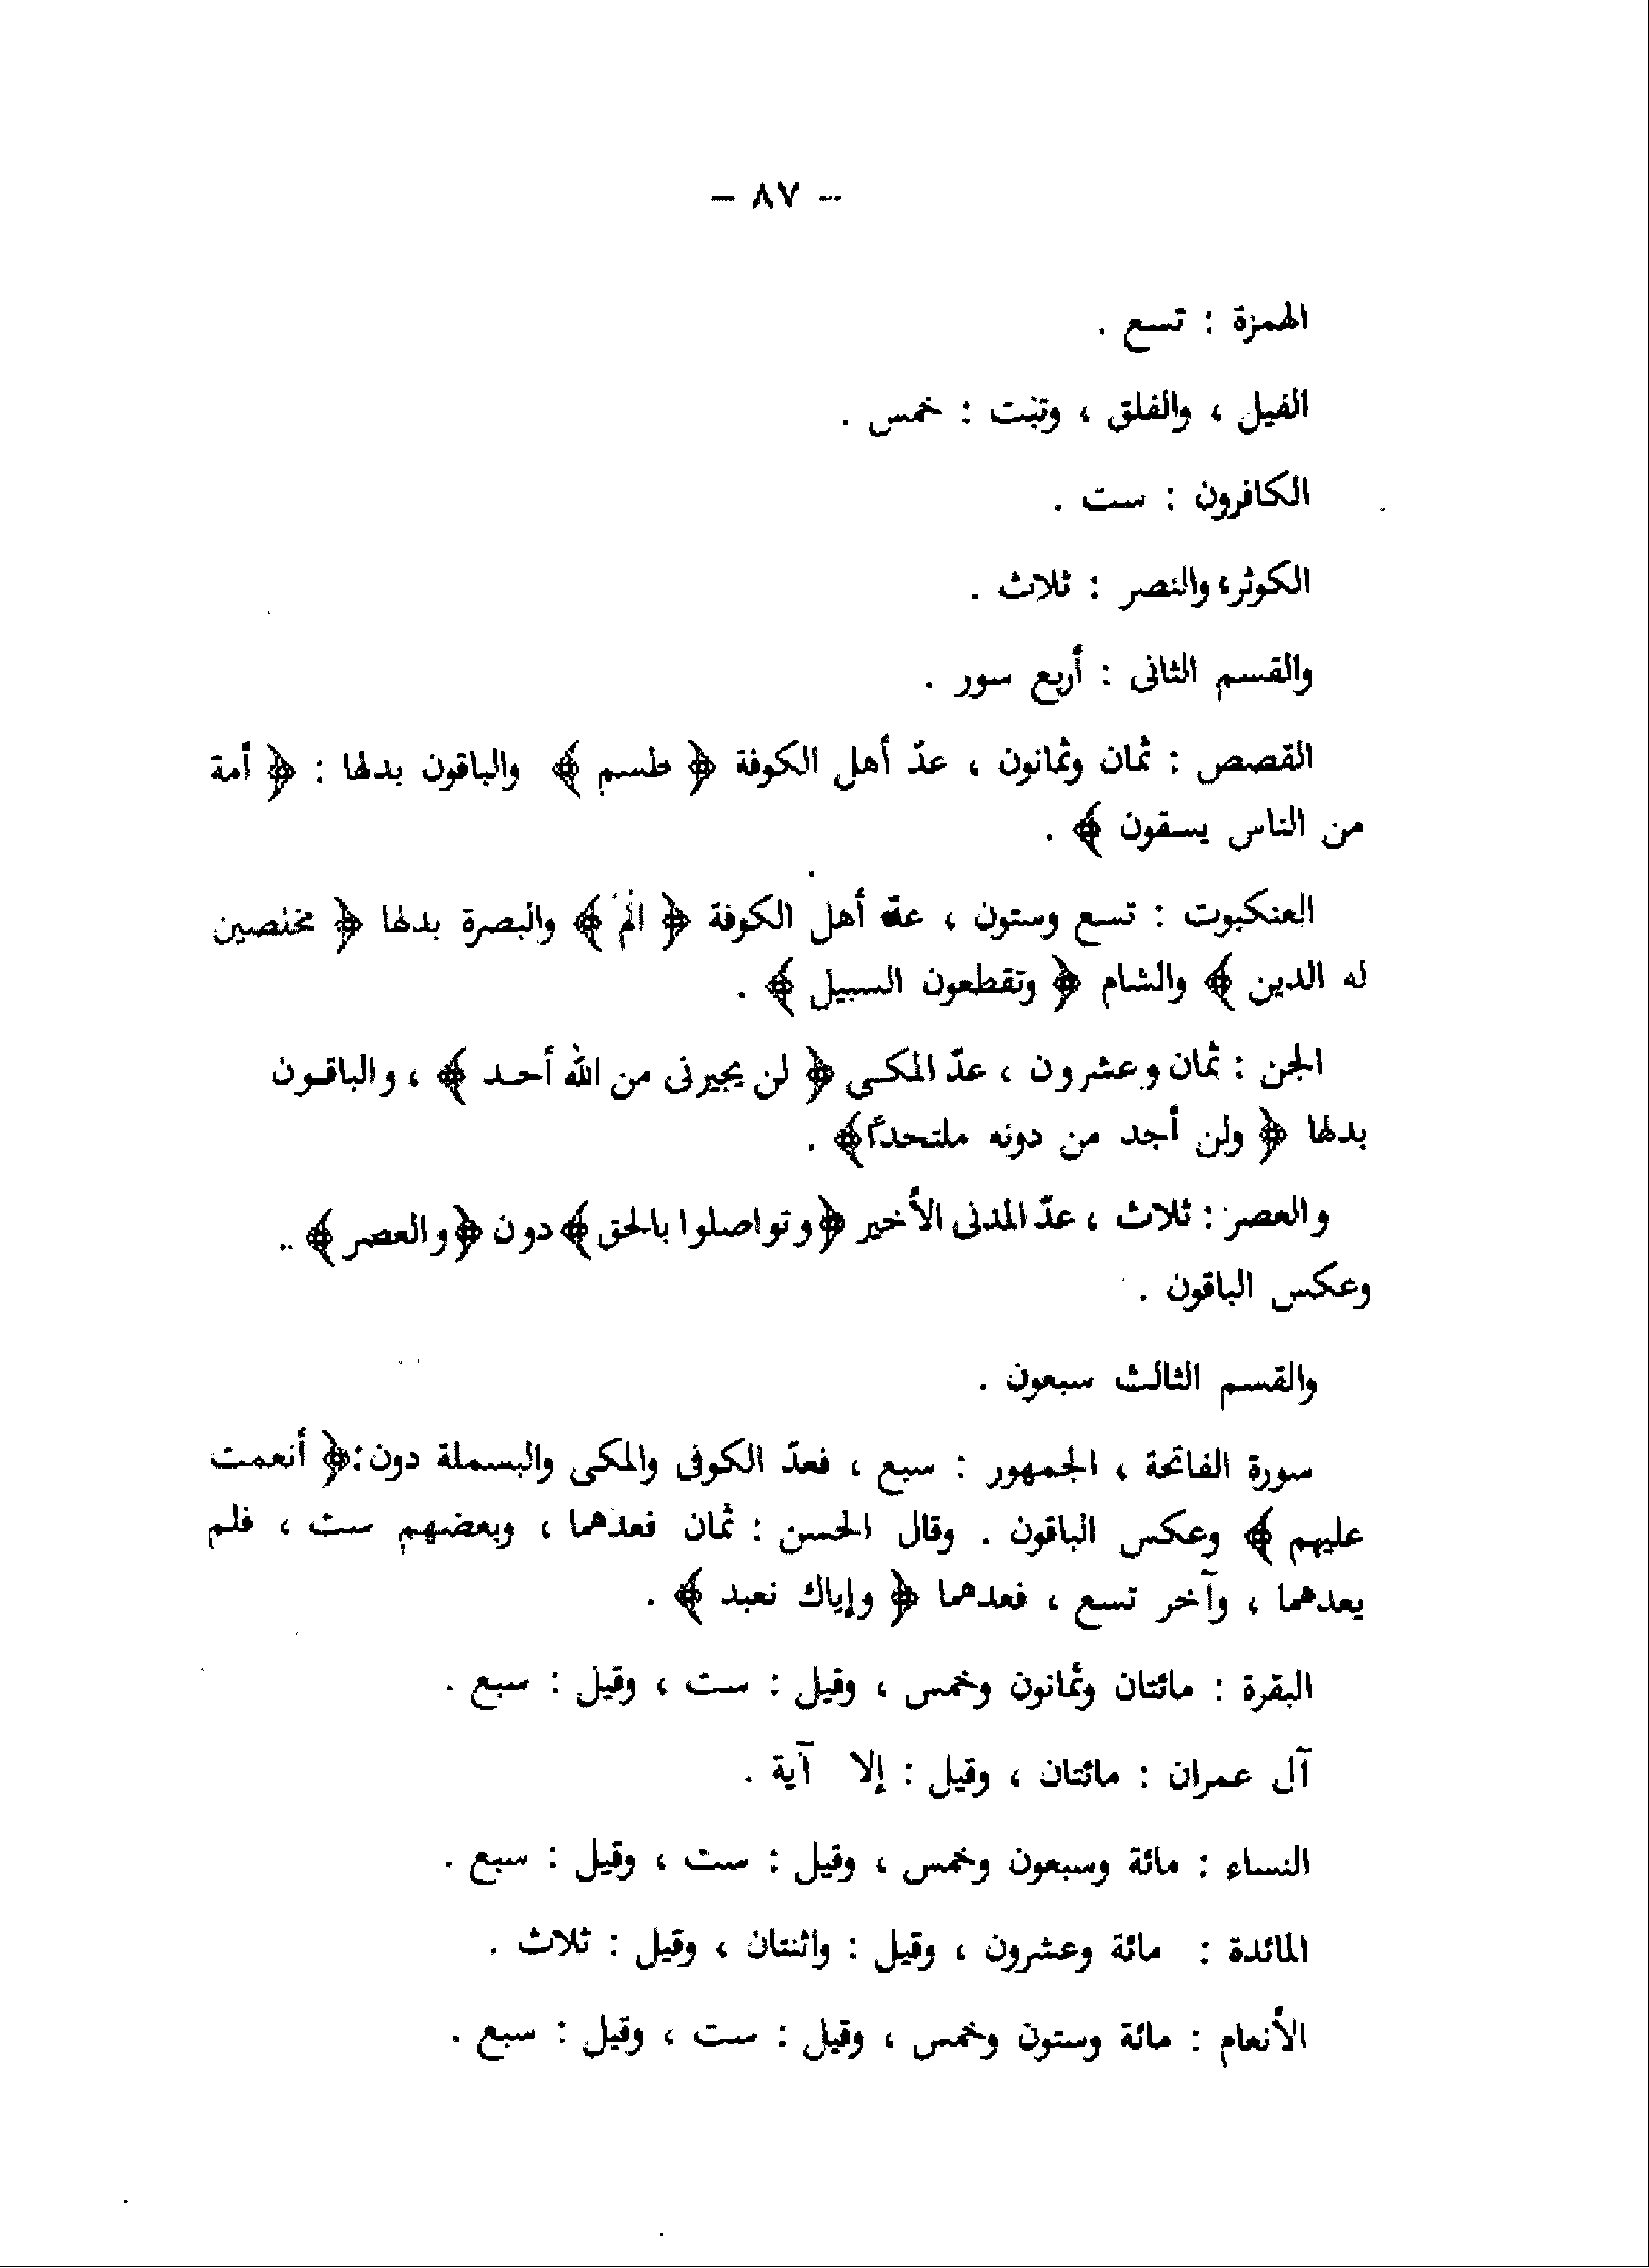 — ٨٧ —
الهمزة : تسع .
الفيل ، والفلق ، وتبت : خمس .
الكافرون : ست .
الكوثر، والنصر : ثلاث .
والقسم الثانى : أربع سور .
القصص : ثمان وثمانون ، عدّ أهل الكوفة ﴿ طسم ﴾ والباقون بدلها : ﴿ أمة
من الناس يسقون ﴾ .
العنكبوت : تسع وستون ، عدّ أهل الكوفة ﴿ الم ﴾ والبصرة بدلها ﴿ مخلصين
له الدين ﴾ والشام ﴿ وتقطعون السبيل ﴾ .
الجن : ثمان وعشرون ، عدّ المكى ﴿ لن يجيرنى من الله أحد ﴾ ، والباقون
بدلها ﴿ ولن أجد من دونه ملتحداً﴾ .
والعصر : ثلاث ، عدّ المدنى الأخير ﴿وتواصلوا بالحق﴾ دون ﴿والعصر﴾ ..
وعكس الباقون .
والقسم الثالث سبعون .
سورة الفاتحة ، الجمهور : سبع ، فعدّ الكوفى والمكى والبسملة دون:﴿ أنعمت
عليهم ﴾ وعكس الباقون . وقال الحسن : ثمان فعدهما ، وبعضهم ست ، فلم
يعدهما ، وآخر تسع ، فعدهما ﴿ وإياك نعبد ﴾ .
البقرة : مائتان وثمانون وخمس ، وقيل : ست ، وقيل : سبع .
آل عمران : مائتان ، وقيل : إلا آية .
النساء : مائة وسبعون وخمس ، وقيل : ست ، وقيل : سبع .
المائدة : مائة وعشرون ، وقيل : واثنتان ، وقيل : ثلاث .
الأنعام : مائة وستون وخمس ، وقيل : ست ، وقيل : سبع .